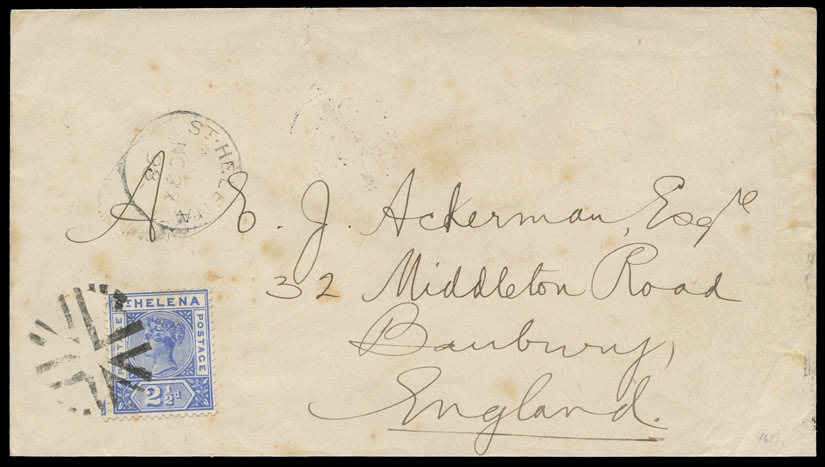 ST. HELENA
NO 22
98
A E. J. Ackerman, Esqre
32 Middleton Road
Banbury,
England.
ST HELENA
POSTAGE
POSTAGE
2½d